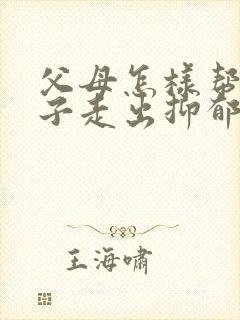 父母怎樣幫
子走出抑郁
王海嘯